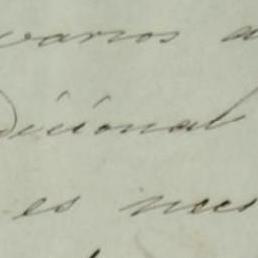 varios a
dicional
es nece